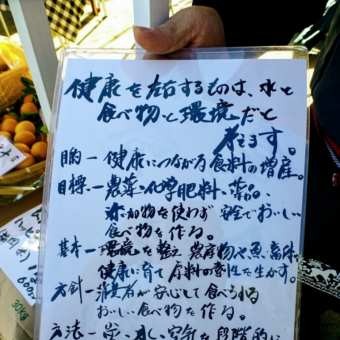 健康を左右するものは、水と
食べ物と環境だと
考えます。
目的ー健康につながる食料の増産。
目標ー農薬、化学肥料、薬品、
添加物を使わず安全でおいしい
食べ物を作る。
基本ー環境を整え農産物や魚、畜体を
健康に育て原料の特性を生かす。
方針ー消費者が安心して食べられる
おいしい食べ物を作る。
方法ー 水、空気を段階的に
30kg